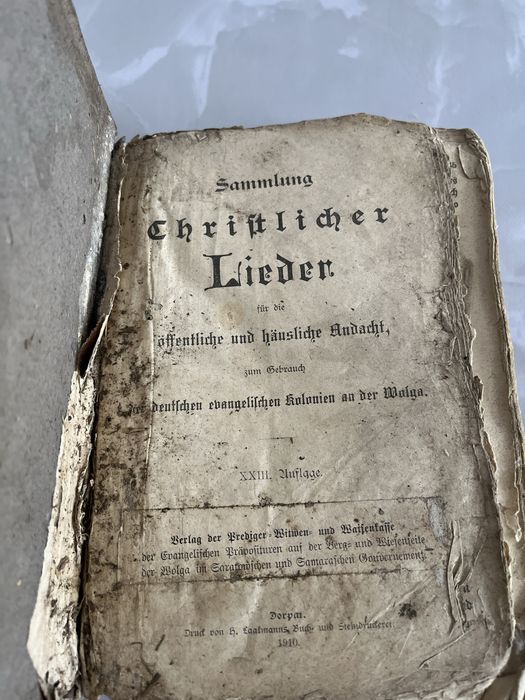 Sammlung
Christlicher
Lieder
für die
öffentliche und häusliche Andacht,
zum Gebrauch
deutschen evangelischen Kolonien an der Wolga.
XXIII. Auflage.
Verlag der Prediger-Witwen- und Waisenkasse
der Evangelischen Präposituren auf der Berg- und Wiesenseite
der Wolga im Saratowschen und Samaraschen Gouvernement.
Dorpat.
Druck von H. Laakmanns Buch- und Steindruckerei.
1910.